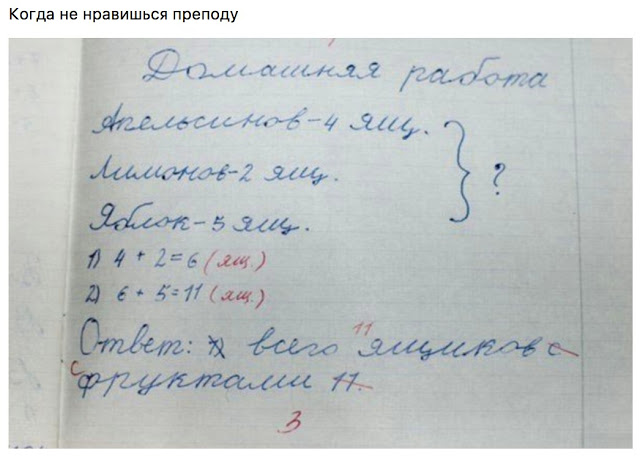 Когда не нравишься преподу
Домашняя работа
Апельсинов-4 ящ.
Лимонов-2 ящ. } ?
Яблок-5 ящ.
1) 4 + 2=6 (ящ.)
2) 6 + 5=11 (ящ.)
Ответ: всего 11 ящиков с
с фруктами 11.
3